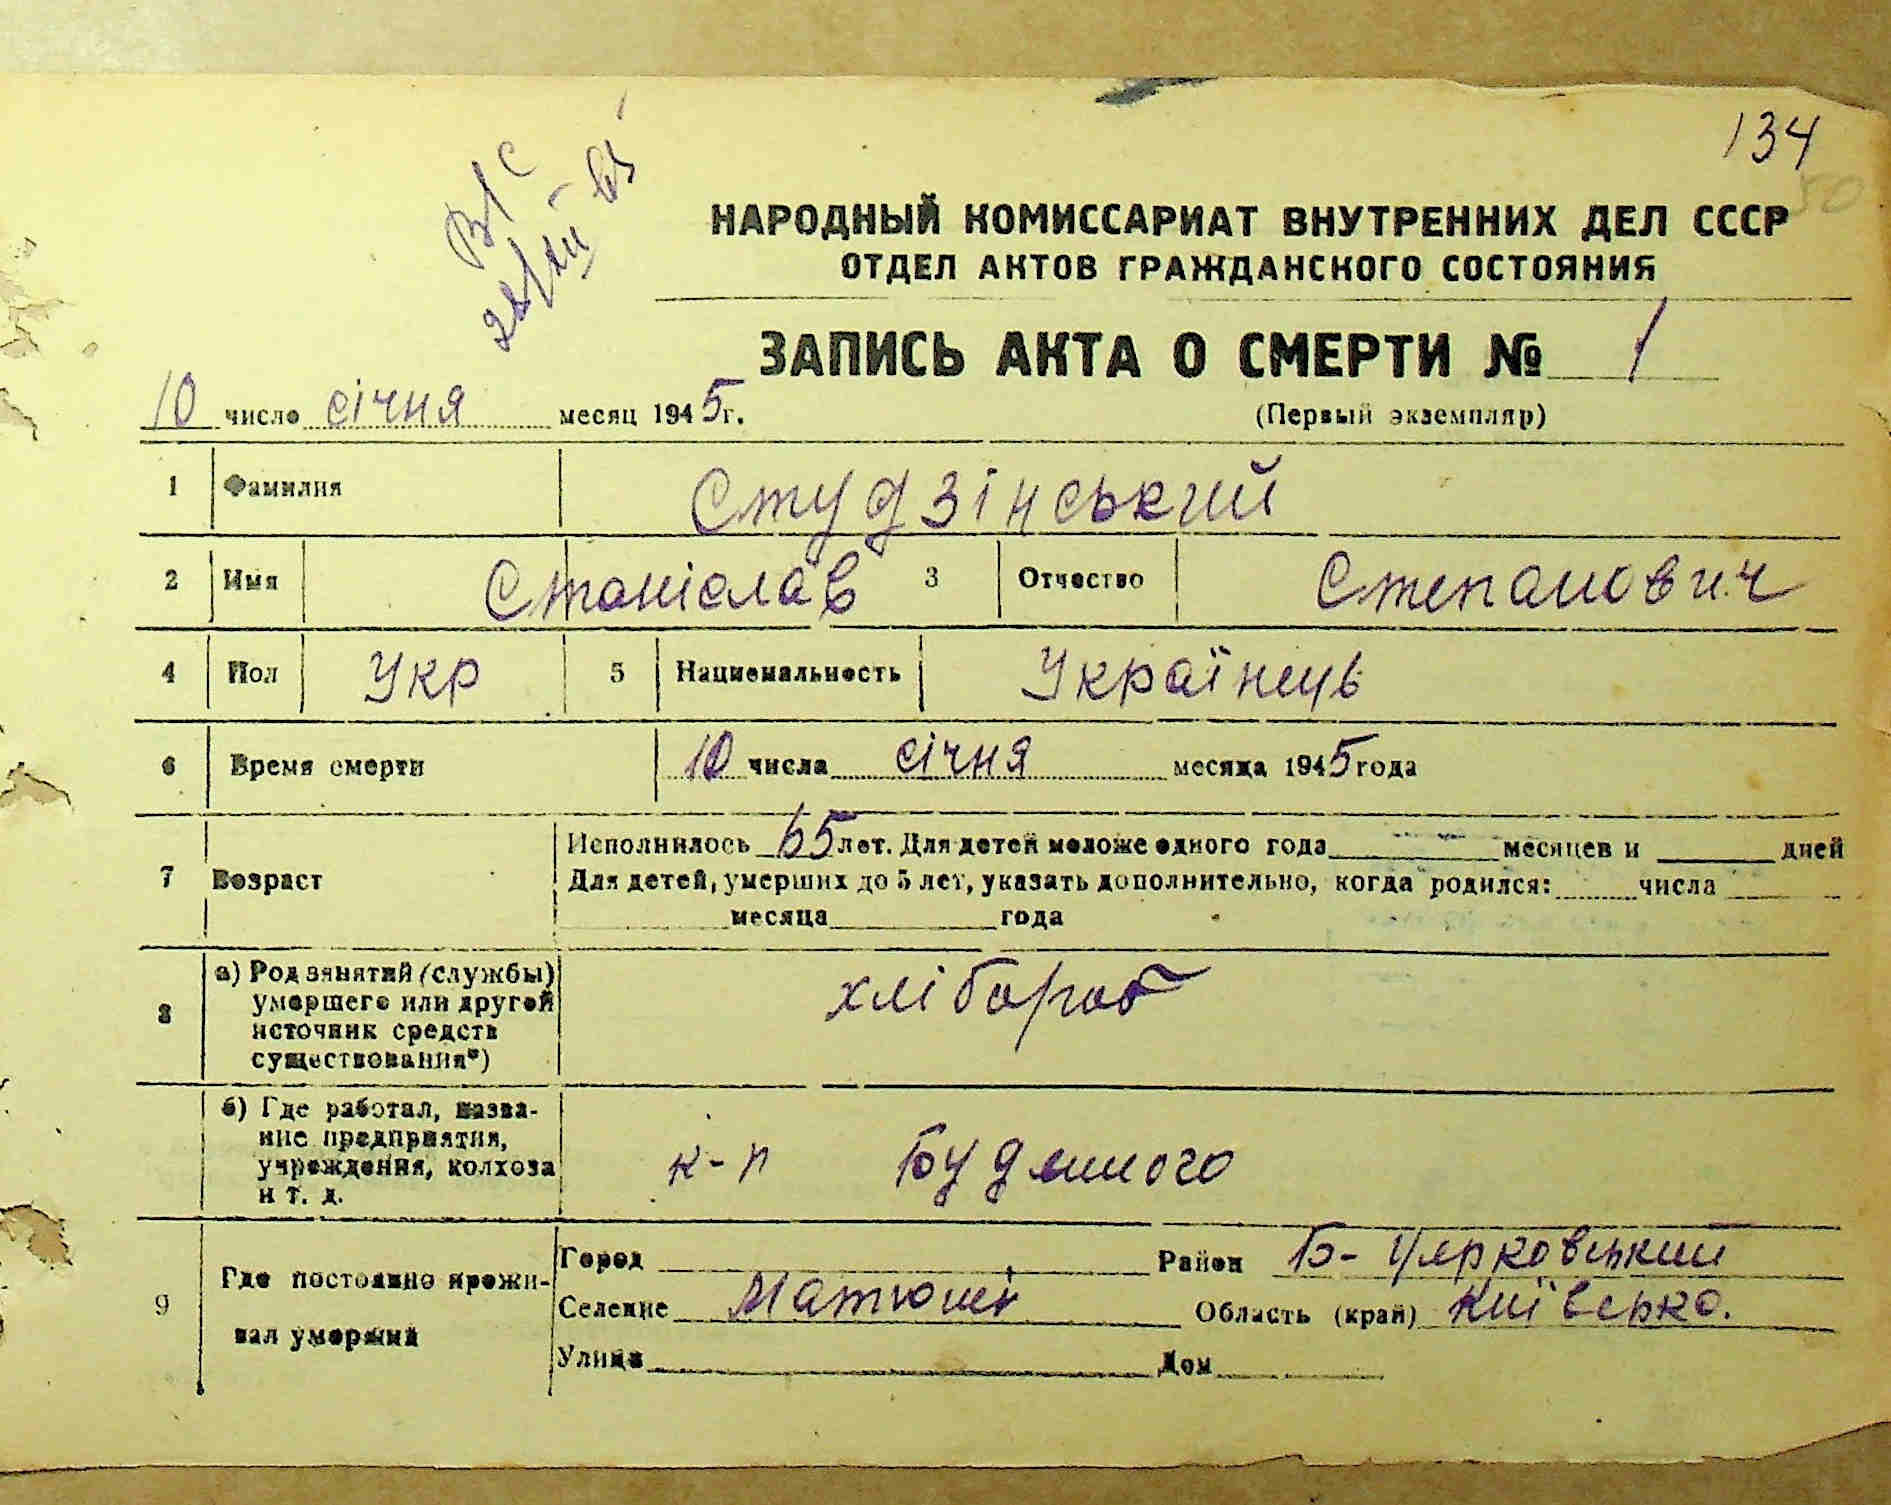 134
50
НАРОДНЫЙ КОМИССАРИАТ ВНУТРЕННИХ ДЕЛ СССР
ОТДЕЛ АКТОВ ГРАЖДАНСКОГО СОСТОЯНИЯ
ЗАПИСЬ АКТА О СМЕРТИ № 1
10 число січня месяц 1945г. (Первый экземпляр)
1 Фамилия Студзінський
2 Имя Станіслав 3 Отчество Степанович
4 Пол Укр 5 Национальность Українець
6 Время смерти 10 числа січня месяца 1945 года
7 Возраст Исполнилось 65 лет. Для детей моложе одного года месяцев и дней
Для детей, умерших до 5 лет, указать дополнительно, когда родился: числа
месяца года
8 а) Род занятий (службы) умершего или другой источник средств существования*) хлібороб
б) Где работал, название предприятия, учреждения, колхоза и т. д. к-п Будьонного
9 Где постоянно проживал умерший
Город Район Б-Церковський
Селение Матюші Область (край) Київсько.
Улица Дом